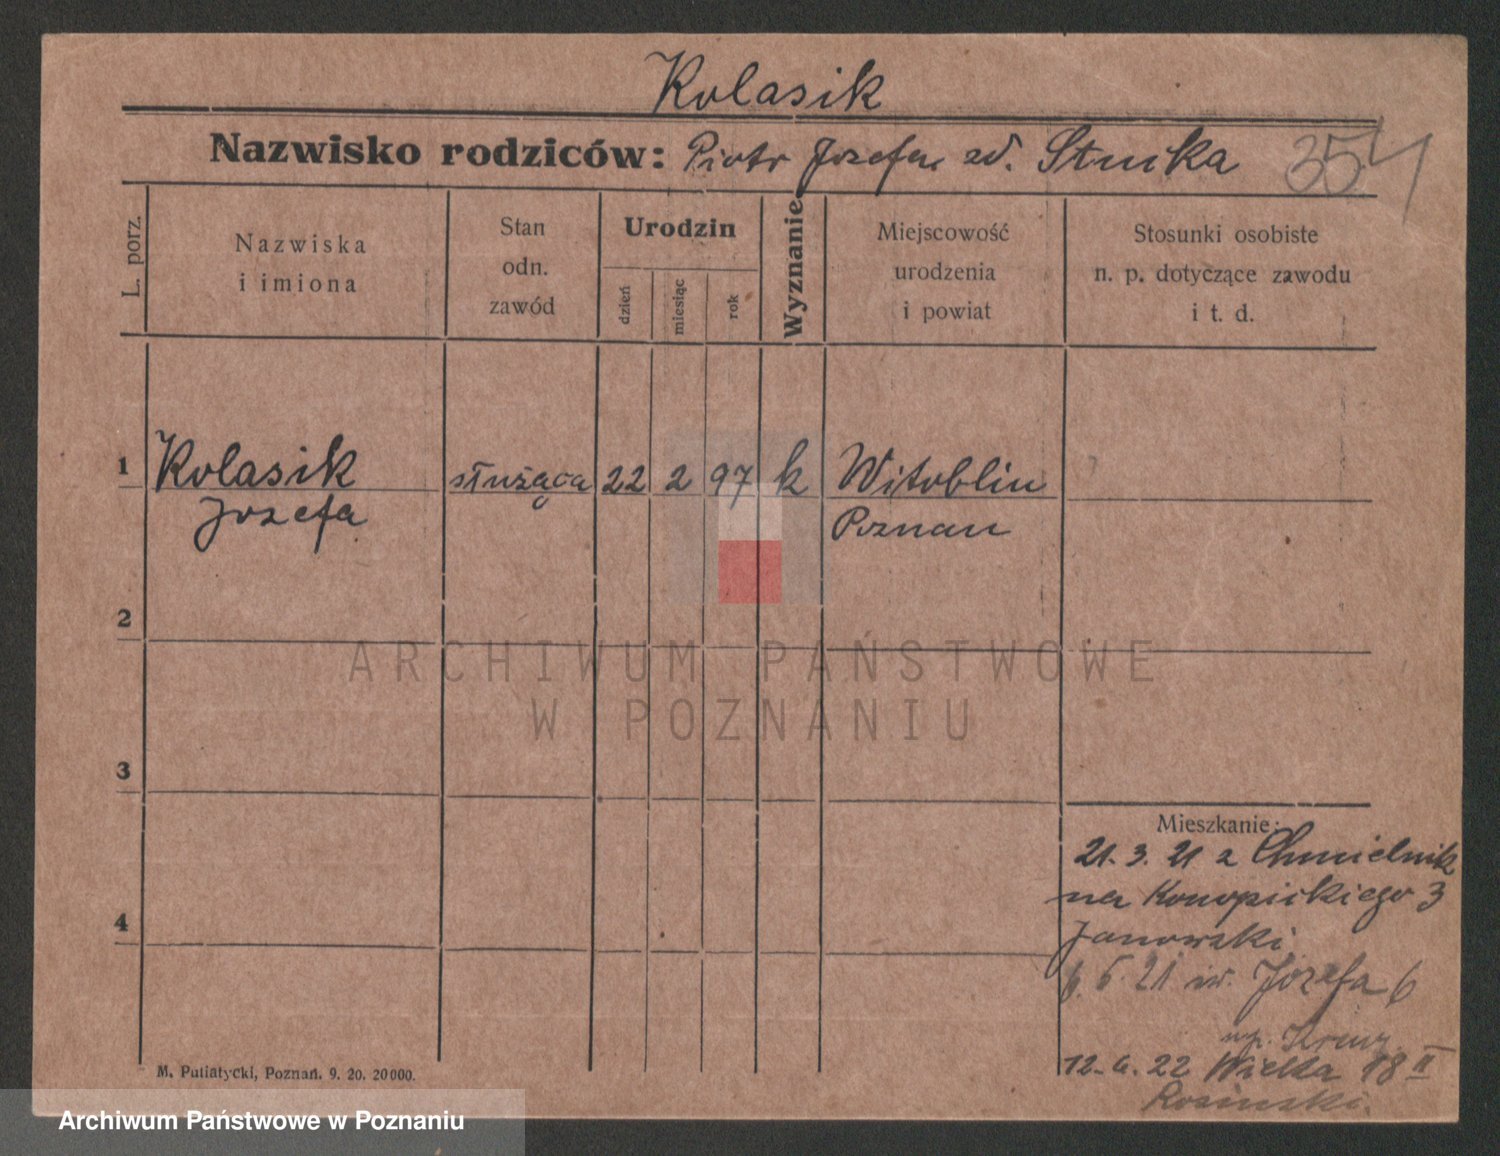 Kolasik
Nazwisko rodziców: Piotr Józefa zd. Stuika
354
L. porz.
Nazwiska
i imiona
Stan
odn.
zawód
Urodzin
dzień
miesiąc
rok
Wyznanie
Miejscowość
urodzenia
i powiat
Stosunki osobiste
n. p. dotyczące zawodu
i t. d.
1 Kolasik służąca 22 2 97 k Witoblin
Jozefa Poznan
2
3
4
Mieszkanie:
21. 3. 21 z Chmielnik
na Konopickiego 3
Janowski
6. 5. 21 św. Józefa 6
np.
12. 6. 22 Wielka 18 II
Rosinski.
M. Putiatycki, Poznań. 9. 20. 20000.
ARCHIWUM PAŃSTWOWE
W POZNANIU
Archiwum Państwowe w Poznaniu